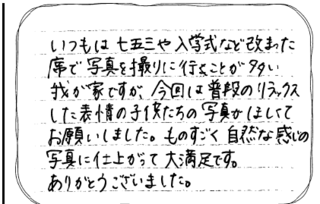 いつもは七五三や入学式など改まった
席で写真を撮りに行くことが多い
我が家ですが、今回は普段のリラックス
した表情の子供たちの写真がほしくて
お願いしました。ものすごく自然な感じの
写真に仕上がって大満足です。
ありがとうございました。